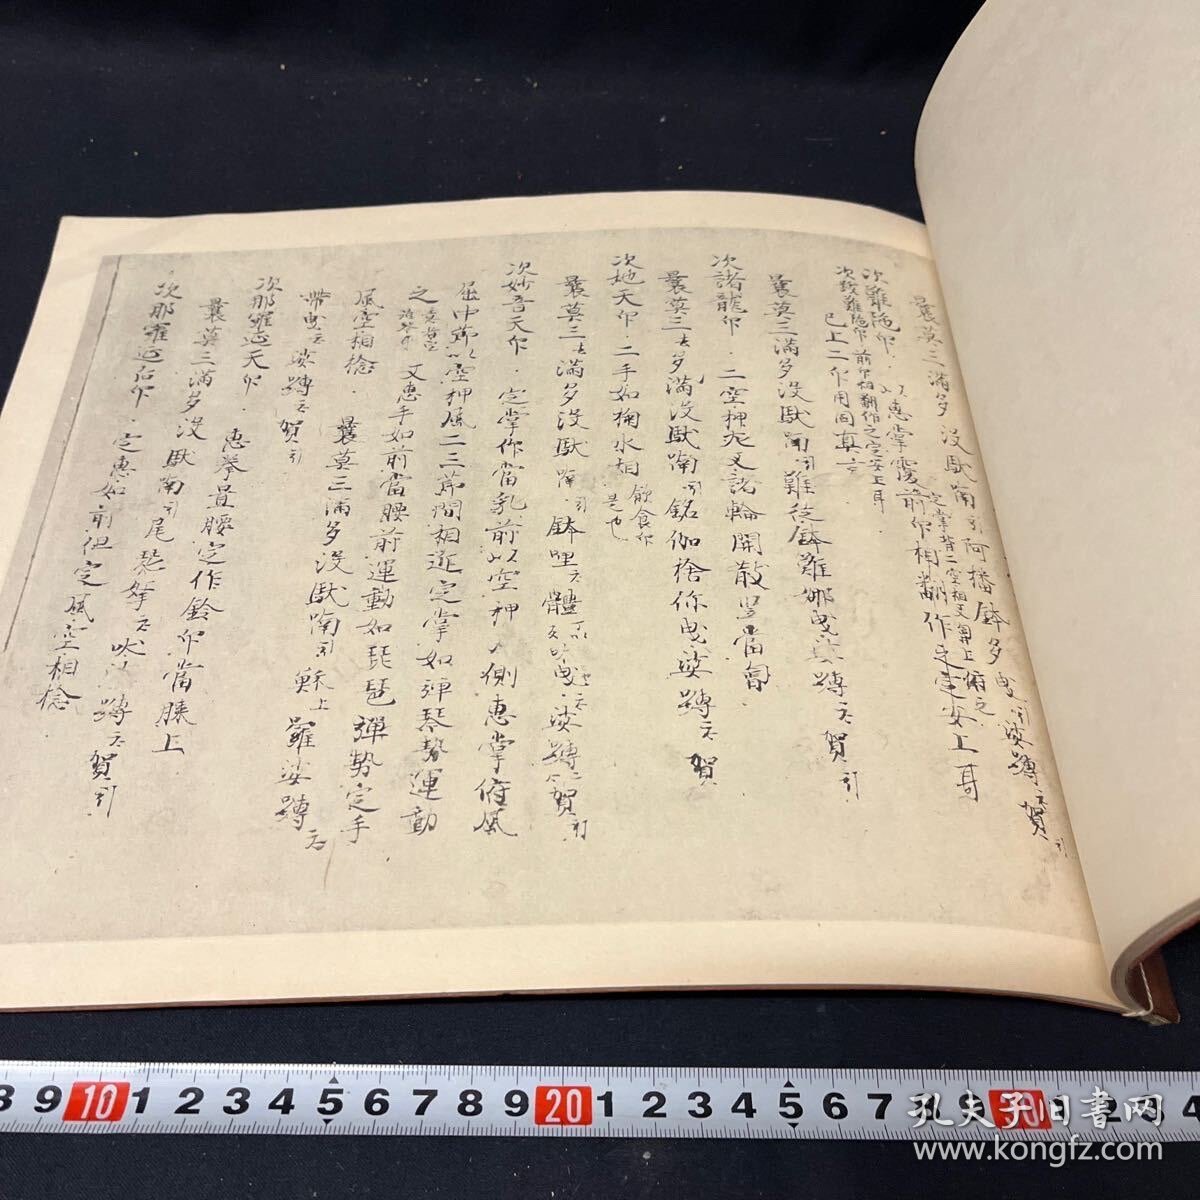 曩莫三滿多沒馱喃引阿播鉢多曳引娑嚩二合賀引
次難陁印 以惠掌覆前印相翻作之定安上耳
次跋難陁印 前印相翻作之定安上耳
已上二印用同真言
曩莫三滿多沒馱喃引難徒鉢難娜曳娑嚩二合賀引
次諸龍印 二空押九叉諸輪開散置當
曩莫三去多滿沒馱喃引銘伽捨你曳娑嚩二合賀
次地天印 二手如掬水相 飲食印是也
曩莫三去滿多沒馱喃引鉢
次妙音天印 定掌作當乳前以空押 側惠掌俯風
屈中節以空押風二三節間相近定掌如彈琴勢運動
之 又惠手如前當腰前運動如琵琶彈勢定手
風空相捻 曩莫三滿多沒馱喃引蘇上羅娑嚩二合
帶曳二合娑嚩二合賀引
次那羅延天印 惠拳置腰定作鈴印當膝上
曩莫三滿多沒馱喃引尾瑟拏二合吠 嚩二合賀引
次那羅延后印 定惠如前但定風空相捻
8 9 10 1 2 3 4 5 6 7 8 9 20 1 2 3 4 5 6 7 8 9 30 1 2 3 4
孔夫子旧书网
www.kongfz.com